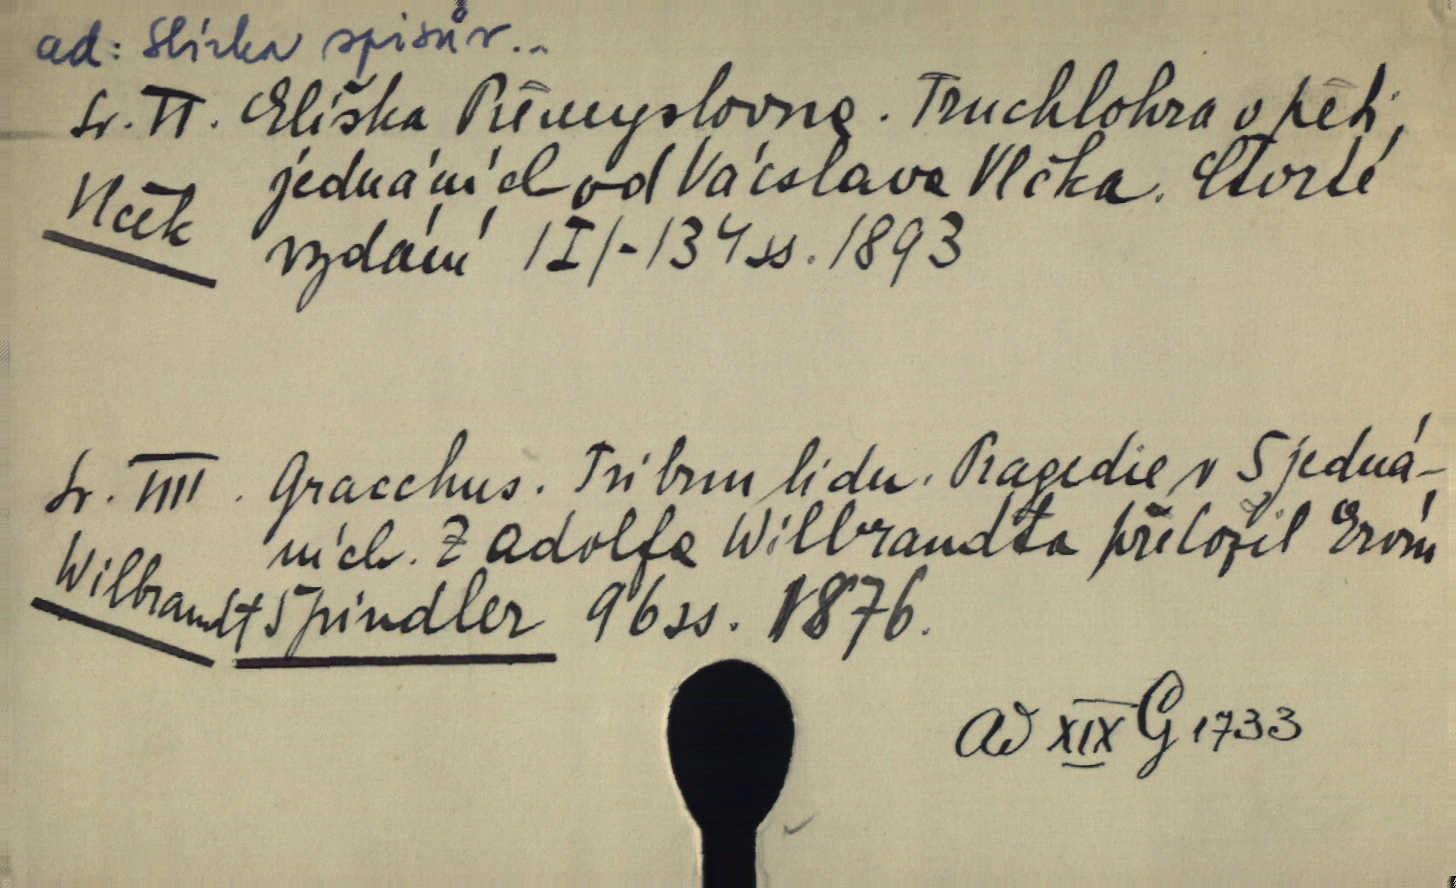 ad: Sbírka spisův..
Sv. II. Eliška Přemyslovna. Truchlohra v pěti
jednáních od Vácslava Vlčka. Čtvrté
Vlček
vydání /I/-134 ss. 1893
Sv. IIII. Gracchus. Tribun lidu. Tragedie v 5 jedná-
ních. Z Adolfa Wilbrandta přeložil Ervín
Wilbrandt Špindler 96 ss. 1876.
Ad XIX G 1733